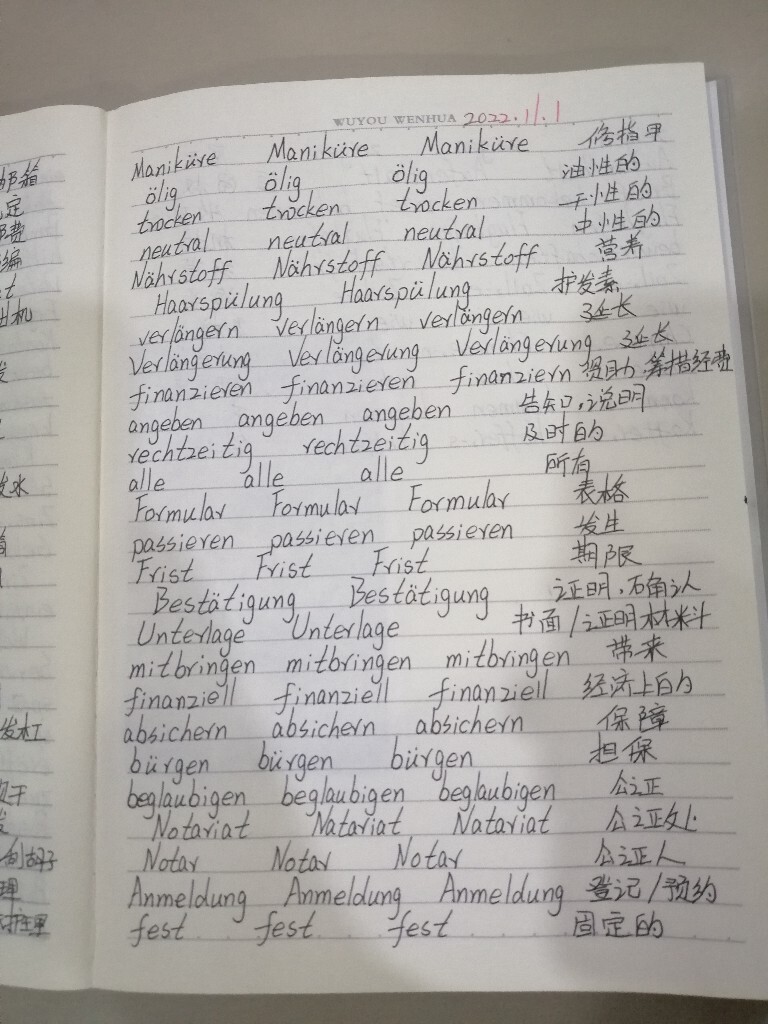 WUYOU WENHUA 2022.11.1
Maniküre Maniküre Maniküre 修指甲
ölig ölig ölig 油性的
trocken trocken trocken 干性的
neutral neutral neutral 中性的
Nährstoff Nährstoff Nährstoff 营养
Haarspülung Haarspülung 护发素
verlängern verlängern verlängern 延长
Verlängerung Verlängerung Verlängerung 延长
finanzieren finanzieren finanziern 资助.筹措经费
angeben angeben angeben 告知,说明
rechtzeitig rechtzeitig 及时的
alle alle alle 所有
Formular Formular Formular 表格
passieren passieren passieren 发生
Frist Frist Frist 期限
Bestätigung Bestätigung 证明,确认
Unterlage Unterlage 书面/证明材料
mitbringen mitbringen mitbringen 带来
finanziell finanziell finanziell 经济上的
absichern absichern absichern 保障
bürgen bürgen bürgen 担保
beglaubigen beglaubigen beglaubigen 公正
Notariat Natariat Natariat 公证处
Notar Notar Notar 公证人
Anmeldung Anmeldung Anmeldung 登记/预约
fest fest fest 固定的
邮箱
定
费
编
t
出机
发
发水
发杠
干
刮胡子
理
护理